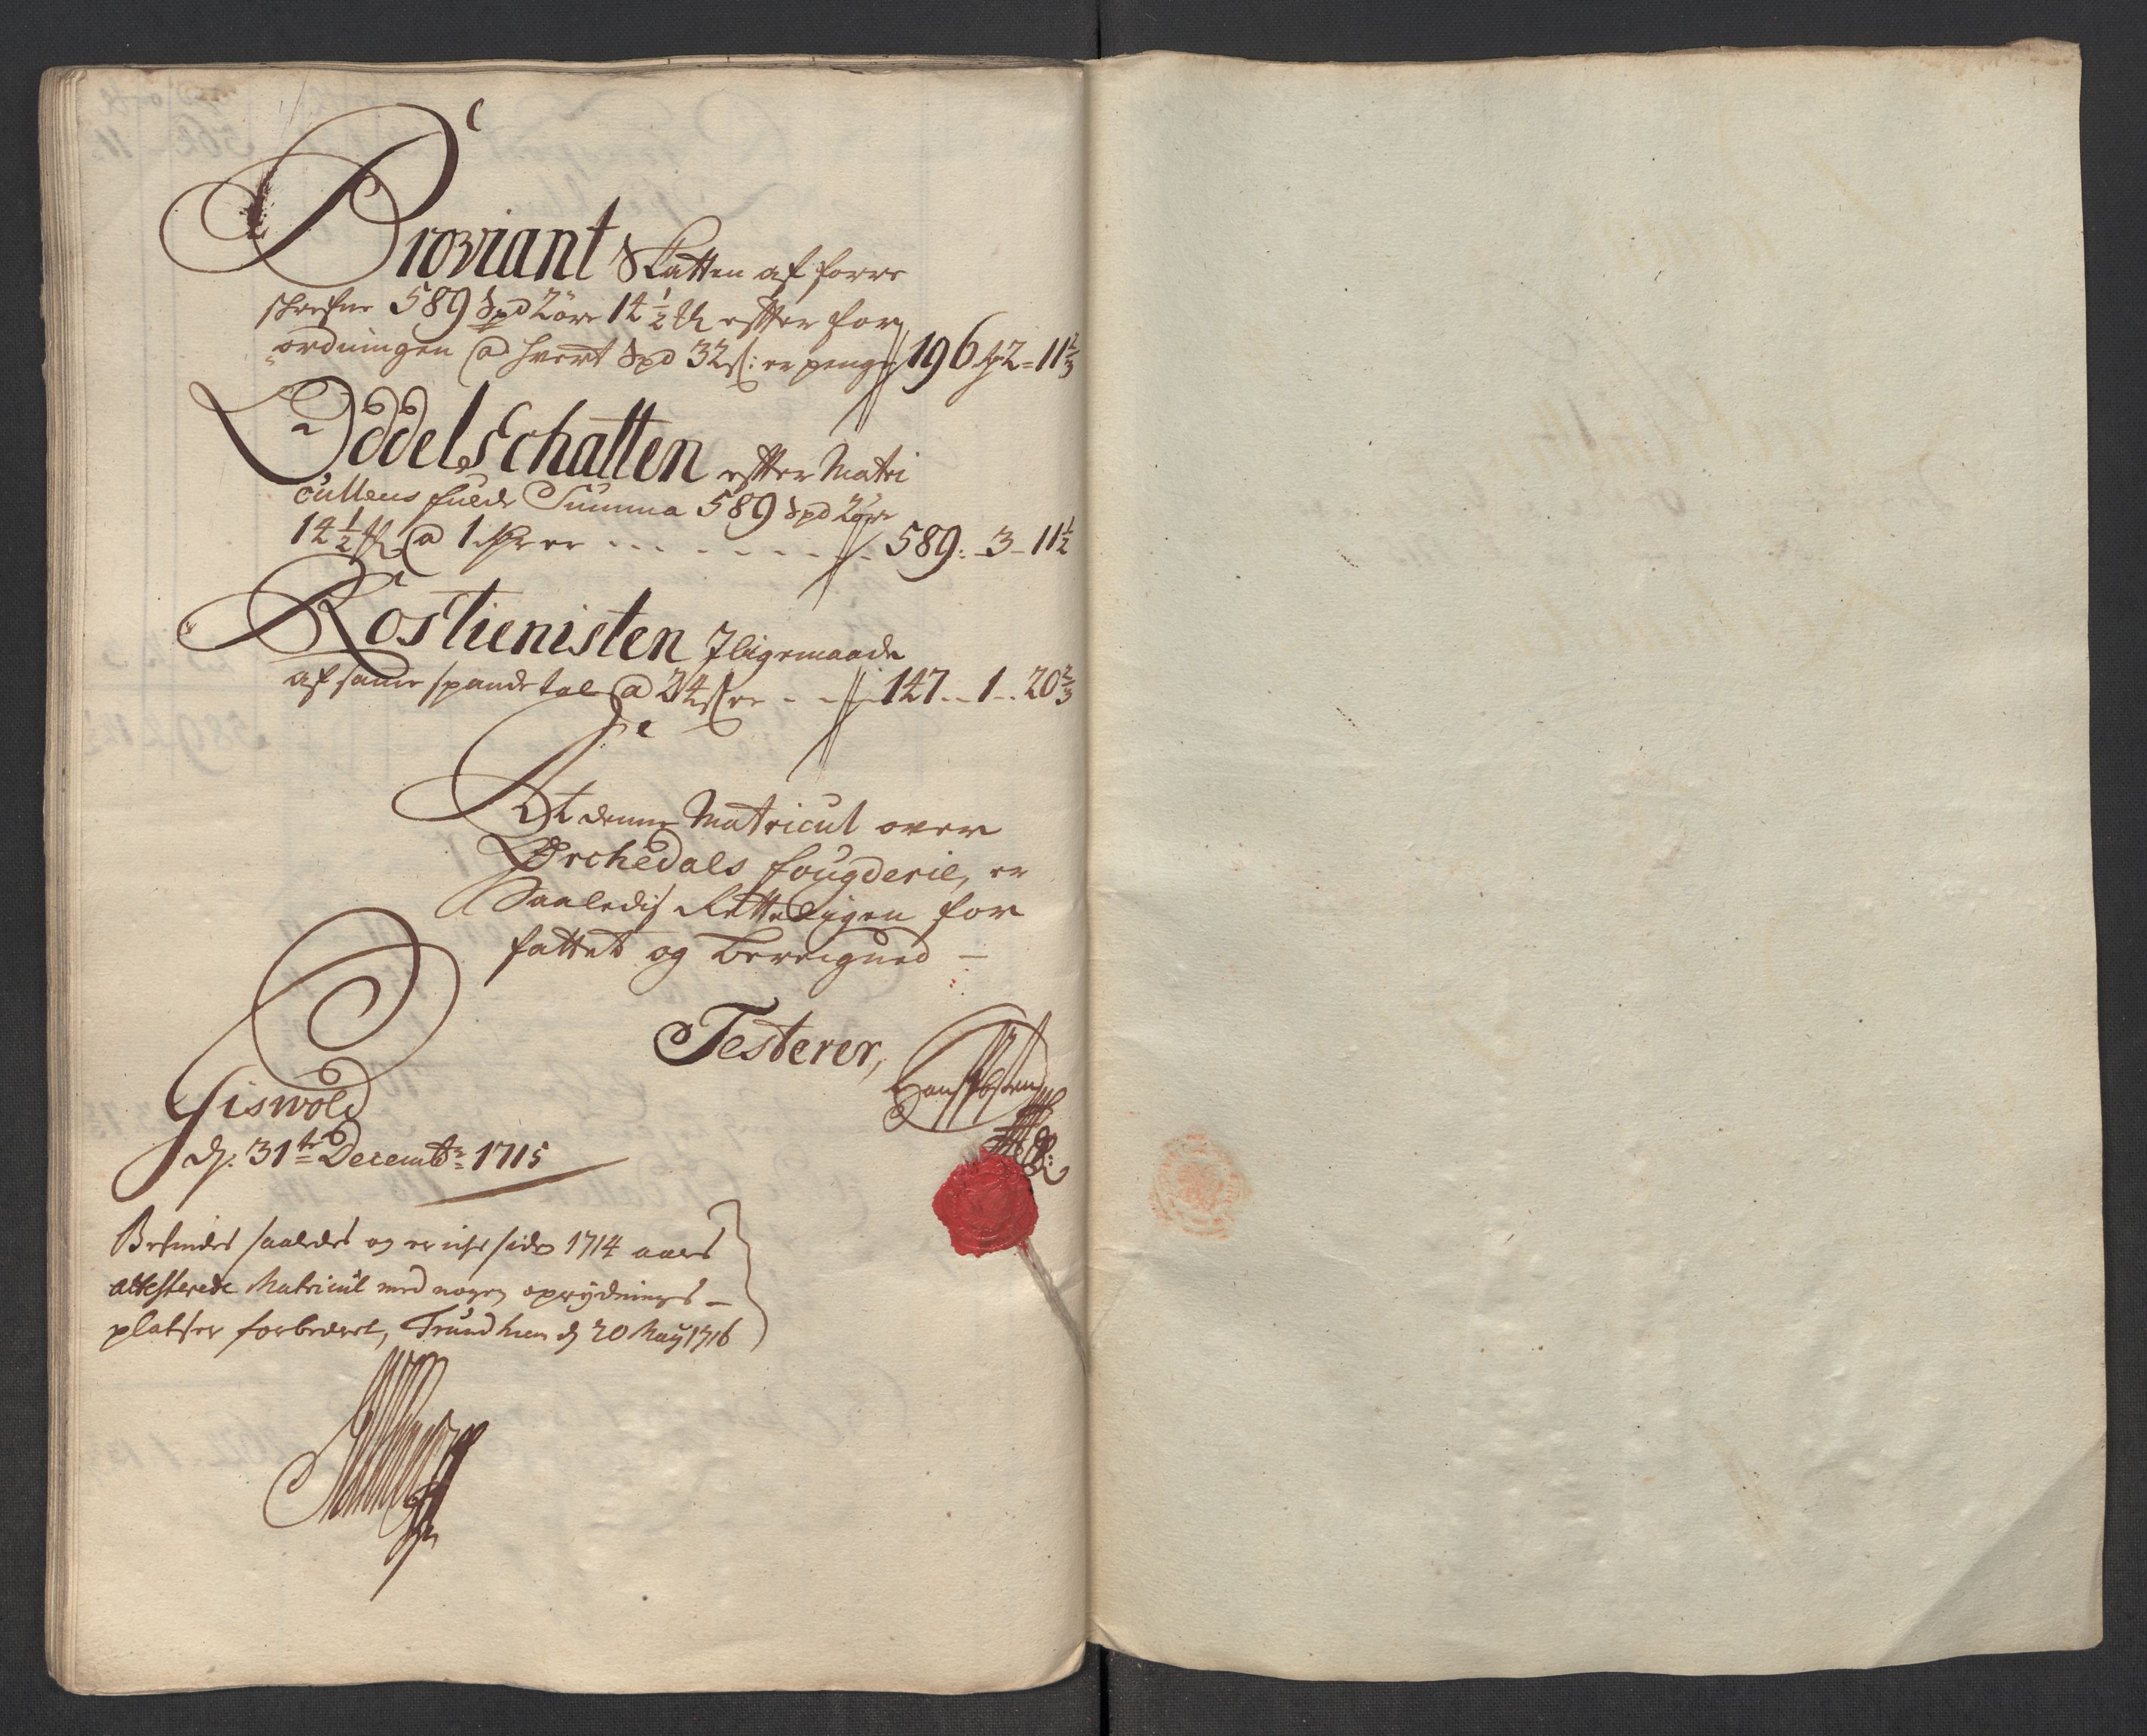 Proviant Skatten af forre
schrefne 589 Spd 2 öre 14½ ℔ efter for
ordningen @ hvert Spd 32 s: er penge 196 2 - 11⅔
Oddel Schatten efter Matri
cullens fulde Summa 589 Spd 2 öre
14½ ℔ @ 1 er 589: - 3 - 11½
Rostienisten Jligemaade
af samme spande tal @ 24 s er 147 - 1 - 20⅔
At denne Matricul over
Ørchedals fougderie, er
Saaledis Rettelligen for
fattet og bereigned
Testerer,
Giswold
d. 31te Decembr: 1715
Befindes saaledes og er icke siden 1714 aars
attesterede Matricul med nogen oprydnings-
platser forbedret, Trundhiem d 20 Maÿ 1716